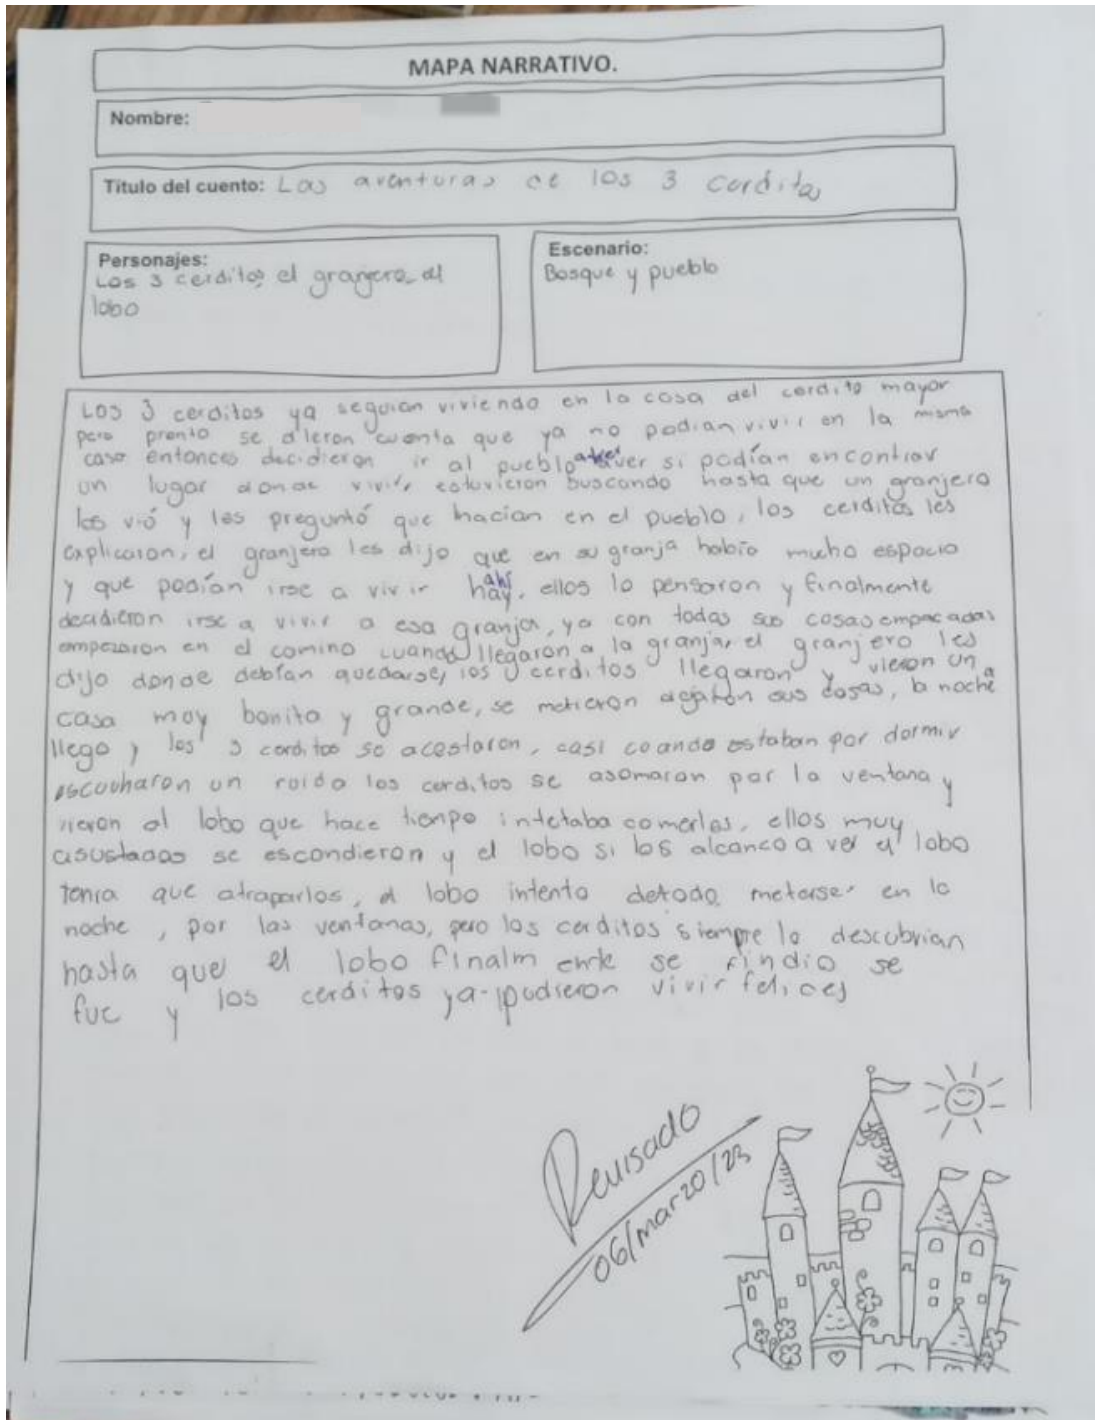 MAPA NARRATIVO.
Nombre:
Título del cuento: Las aventuras de los 3 cerditos
Personajes:
Los 3 cerditos el granjero el
lobo
Escenario:
Bosque y pueblo
Los 3 cerditos ya seguian viviendo en la casa del cerdito mayor
pero pronto se dieron cuenta que ya no podian vivir en la misma
casa entonces decidieron ir al pueblo a ver si podían encontrar
un lugar donde vivir, estuvieron buscando hasta que un granjero
los vió y les preguntó que hacian en el pueblo, los cerditos les
explicaron, el granjero les dijo que en su granja habia mucho espacio
y que podían irse a vivir ahí hay, ellos lo pensaron y finalmente
decidieron irse a vivir a esa granja, ya con todas sus cosas empacadas
empezaron en el camino cuando llegaron a la granja, el granjero les
dijo donde debían quedarse, los 3 cerditos llegaron y vieron una
casa muy bonita y grande, se metieron dejaron sus cosas, la noche
llego y los 3 cerditos se acostaron, casi cuando estaban por dormir
escucharon un roido los cerditos se asomaron por la ventana y
vieron al lobo que hace tiempo intetaba comerlos, ellos muy
asustados se escondieron y el lobo si los alcanco a ver el lobo
tenia que atraparlos, el lobo intento detodo meterse en la
noche, por las ventanas, pero los cerditos siempre lo descubrian
hasta que el lobo finalmente se rindio se
fue y los cerditos ya podieron vivir felices
Revisado
06/marzo/23